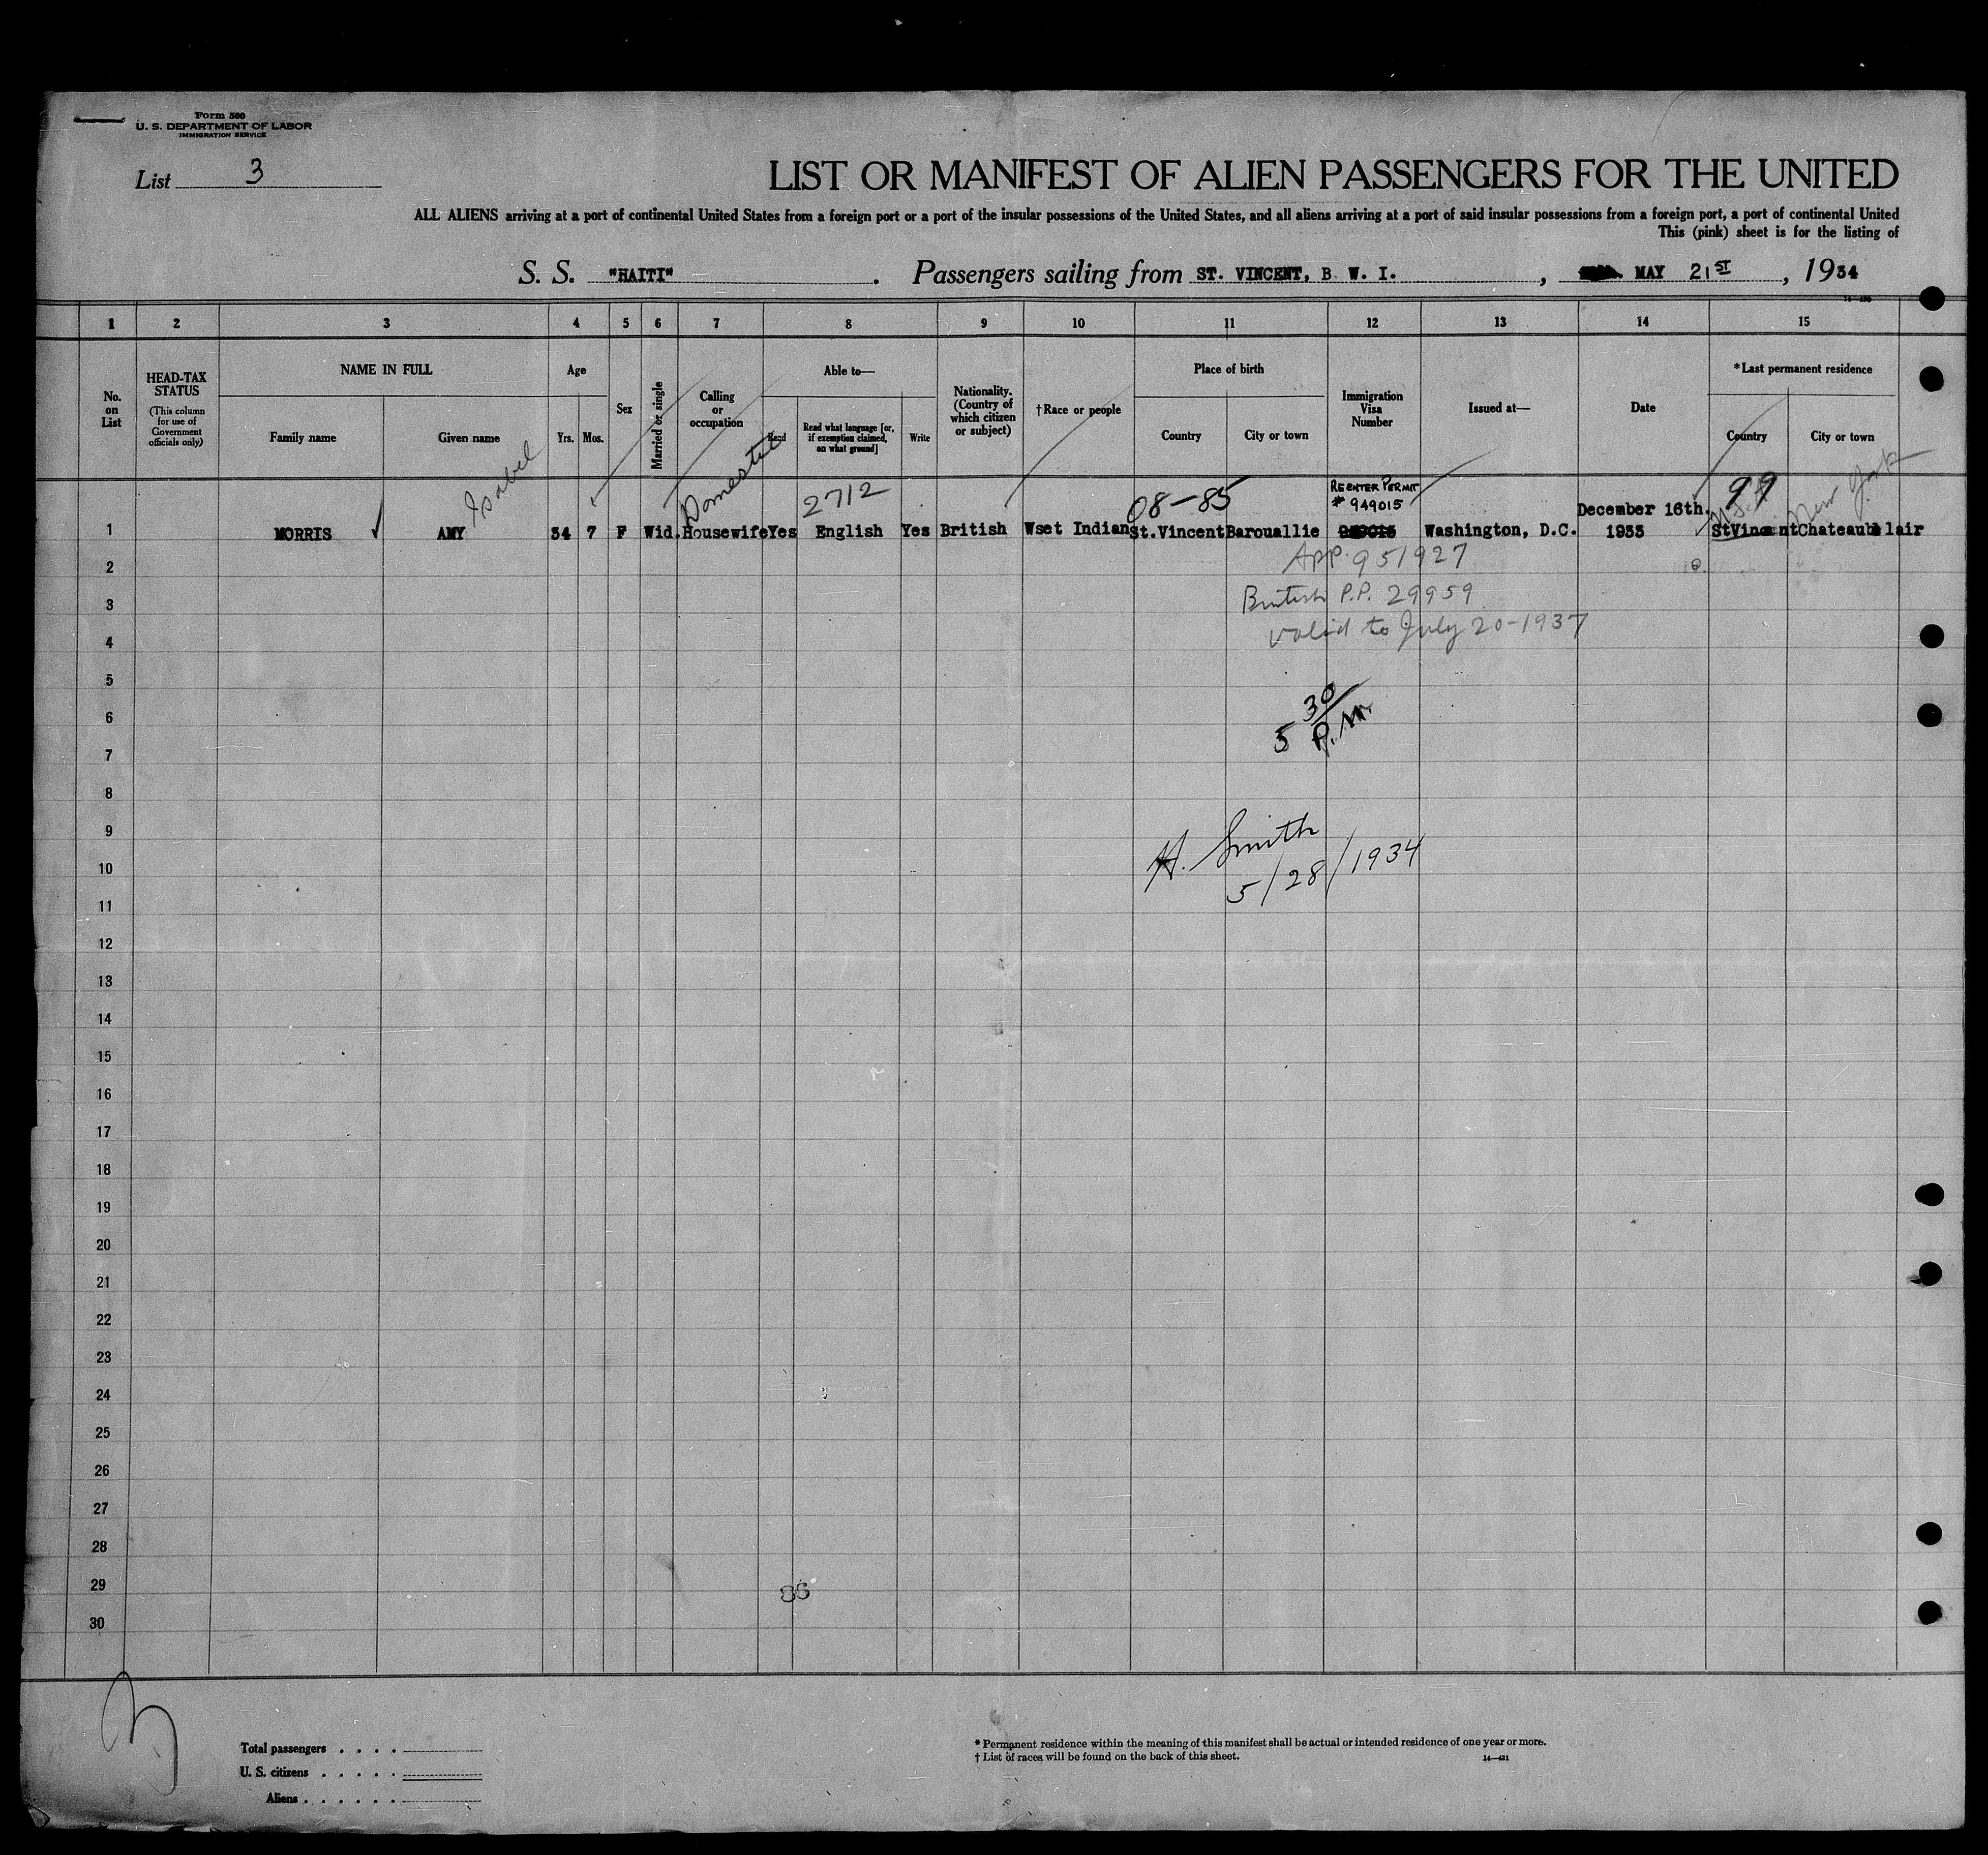 Form 500
U. S. DEPARTMENT OF LABOR
IMMIGRATION SERVICE
List 3
LIST OR MANIFEST OF ALIEN PASSENGERS FOR THE UNITED
ALL ALIENS arriving at a port of continental United States from a foreign port or a port of the insular possessions of the United States, and all aliens arriving at a port of said insular possessions from a foreign port, a port of continental United
This (pink) sheet is for the listing of
S. S. "HAITI". Passengers sailing from ST. VINCENT, B W. I., MAY 21ST, 1934
1 2 3 4 5 6 7 8 9 10 11 12 13 14 15
No. on List
HEAD-TAX STATUS
(This column for use of Government officials only)
NAME IN FULL
Family name
Given name
Age
Yrs.
Mos.
Sex
Married or single
Calling or occupation
Able to—
Read
Read what language [or, if exemption claimed, on what ground]
Write
Nationality. (Country of which citizen or subject)
†Race or people
Place of birth
Country
City or town
Immigration Visa Number
Issued at—
Date
*Last permanent residence
Country
City or town
Isabel
Domestic
2712
08-85
REENTER PERMIT
# 949015
99
New York
1 MORRIS AMY 34 7 F Wid. Housewife Yes English Yes British Wset Indian St.Vincent Barouallie Washington, D.C. December 16th. 1933 StVincent Chateaubelair
2
App. 951927
3
British P.P. 29959
4
valid to July 20-1937
5
6
5 30 P.M.
7
8
9
H. Smith
10
5/28/1934
11
12
13
14
15
16
17
18
19
20
21
22
23
24
25
26
27
28
29
86
30
3
Total passengers . . . .
U. S. citizens . . . . .
Aliens . . . . . .
* Permanent residence within the meaning of this manifest shall be actual or intended residence of one year or more.
† List of races will be found on the back of this sheet.
14—431